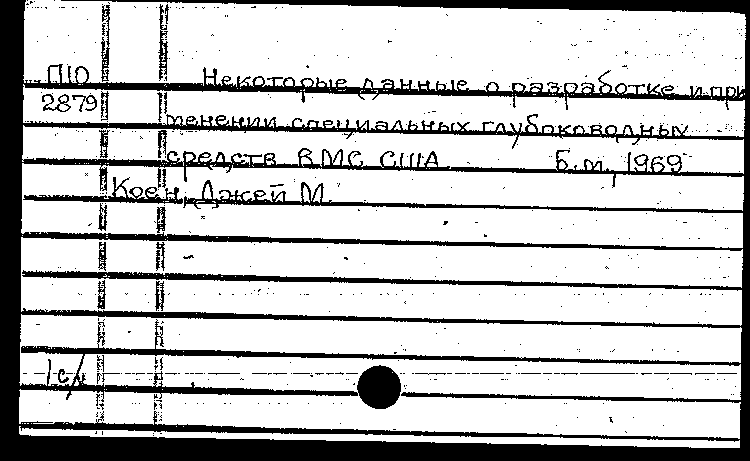 П10 Некоторые данные о разработке и при
2879 менении специальных глубоководных
средств ВМС США Б.м., 1969
Коен, Джей М.